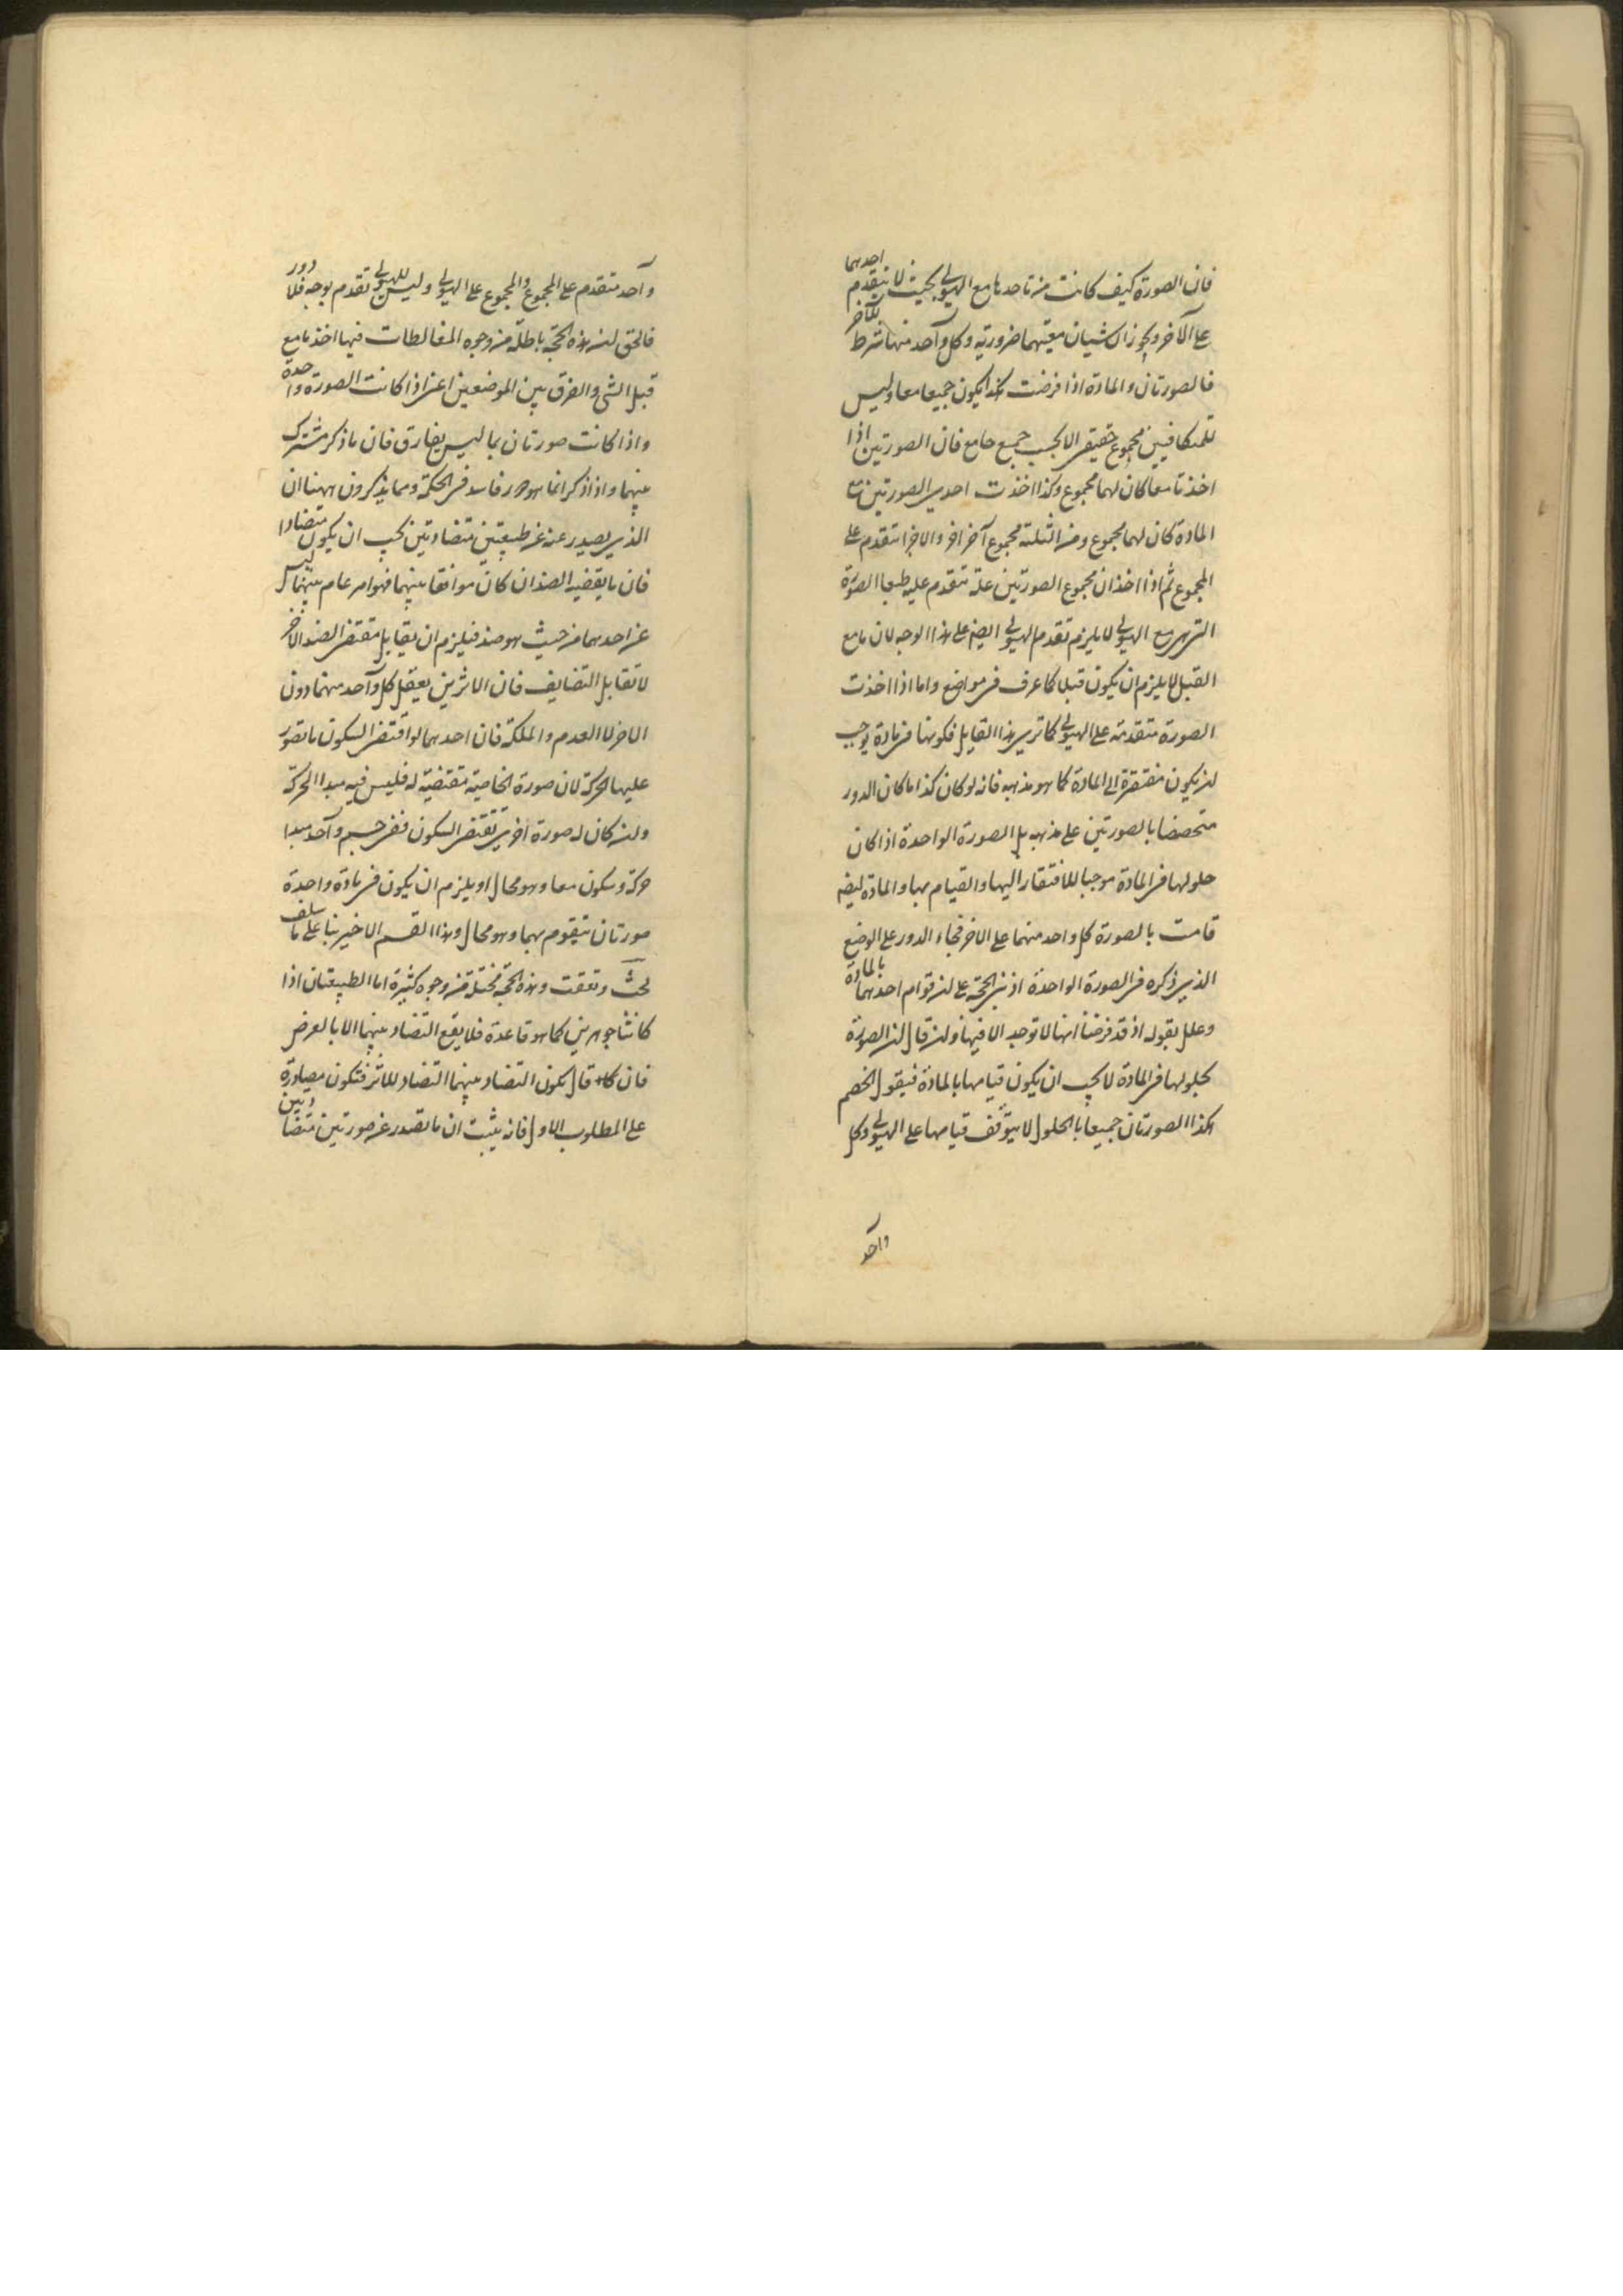 فان الصورة كيف كانت من تاحدها مع الهيولى بحيث لا يتقدم احدهما
على الآخر ويجوز ان شيان معيتهما ضرورية وكل واحد منهما شرط للآخر
فالصورتان والمادة اذا فرضت كذا يكون جميعا معا وليس
للمتكافيين مجموع حقيقى الا بحسب جمع جامع فان الصورتين اذا
اخذتا معا كان لهما مجموع وكذا اخذت احدى الصورتين مع
المادة كان لهما مجموع ومن الثلثة مجموع آخر اخر والاجزا متقدم على
المجموع ثم اذا اخذ ان مجموع الصورتين علة متقدم عليه طبعا الصورة
التى هى مع الهيولى لا يلزم تقدم الهيولى ايضا على هذا الوجه لان ما مع
القبل لا يلزم ان يكون قبلا كما عرف فى مواضع واما اذا اخذت
الصورة متقدمة على الهيولى كما ترى هذا القايل فكونها فى مادة يوجب
ان يكون مفتقرة الى المادة كما هو مذهبه فانه لو كان كذا ما كان الدور
متخصصا بالصورتين على مذهبه بل الصورة الواحدة اذا كان
حلولها فى المادة موجبا للافتقار اليها والقيام بها والمادة ايضا
قامت بالصورة كل واحد منهما على الاخر فجاء الدور على الوضع
الذى ذكره فى الصورة الواحدة اذ بنى الحجة على ان قوام احدهما بالمادة
وعلل بقوله اذ قد فرضنا انها لا توجد الا فيها وان قال ان الصورة
بحلولها فى المادة لا يجب ان يكون قيامها بالمادة فيقول الخصم
هكذا الصورتان جميعا بالحلول لا يتوقف قيامها على الهيولى وكل
واحد
واحد متقدم على المجموع والمجموع على الهيولى وليس للهيولى تقدم بوجه فلا دور
فالحق ان هذه الحجة باطلة من وجوه المغالطات فيها اخذ ما مع
قبل الشى والفرق بين الموضعين اعنى اذا كانت الصورة واحدة
واذا كانت صورتان بما ليس بفارق فان ما ذكر مشترك
بينهما واذا ذكر انما هو فاسد فى الحكمة ومما يذكرون ههنا ان
الذى يصدر عنه عن طبيعتين متضادتين يجب ان يكون متضادا
فان ما يقضيه الضدان كان موافقا بينهما فهو امر عام بينهما ليس
عن احدهما من حيث هو ضد فيلزم ان يقابل مقتضى الضد الآخر
لا تقابل التضايف فان الاثرين يعقل كل واحد منهما دون
الاخر لا العدم والملكة فان احدهما لو اقتضى السكون ما تصور
عليها الحركة لان صورة الخاصية مقتضية له فليس فيه مبدا الحركة
وان كان له صورة اخرى تقتضى السكون ففى جسم واحد مبدا
حركة وسكون معا وهو محال او يلزم ان يكون فى مادة واحدة
صورتان يتقوم بهما وهو محال وهذا القسم الاخير بنا على ما سلف
بحث وتعقب وهذه الحجة مختلة من وجوه كثيرة اما الطبيعتان اذا
كانتا جوهرين كما هو قاعدة فلا يقع التضاد بينهما الا بالعرض
فان قال يكون التضاد بينهما التضاد للاثر فتكون مصادرة
على المطلوب الاول فانه يثبت ان ما تصدر عن صورتين متضادين